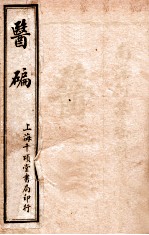 醫碥
上海千頃堂書局印行